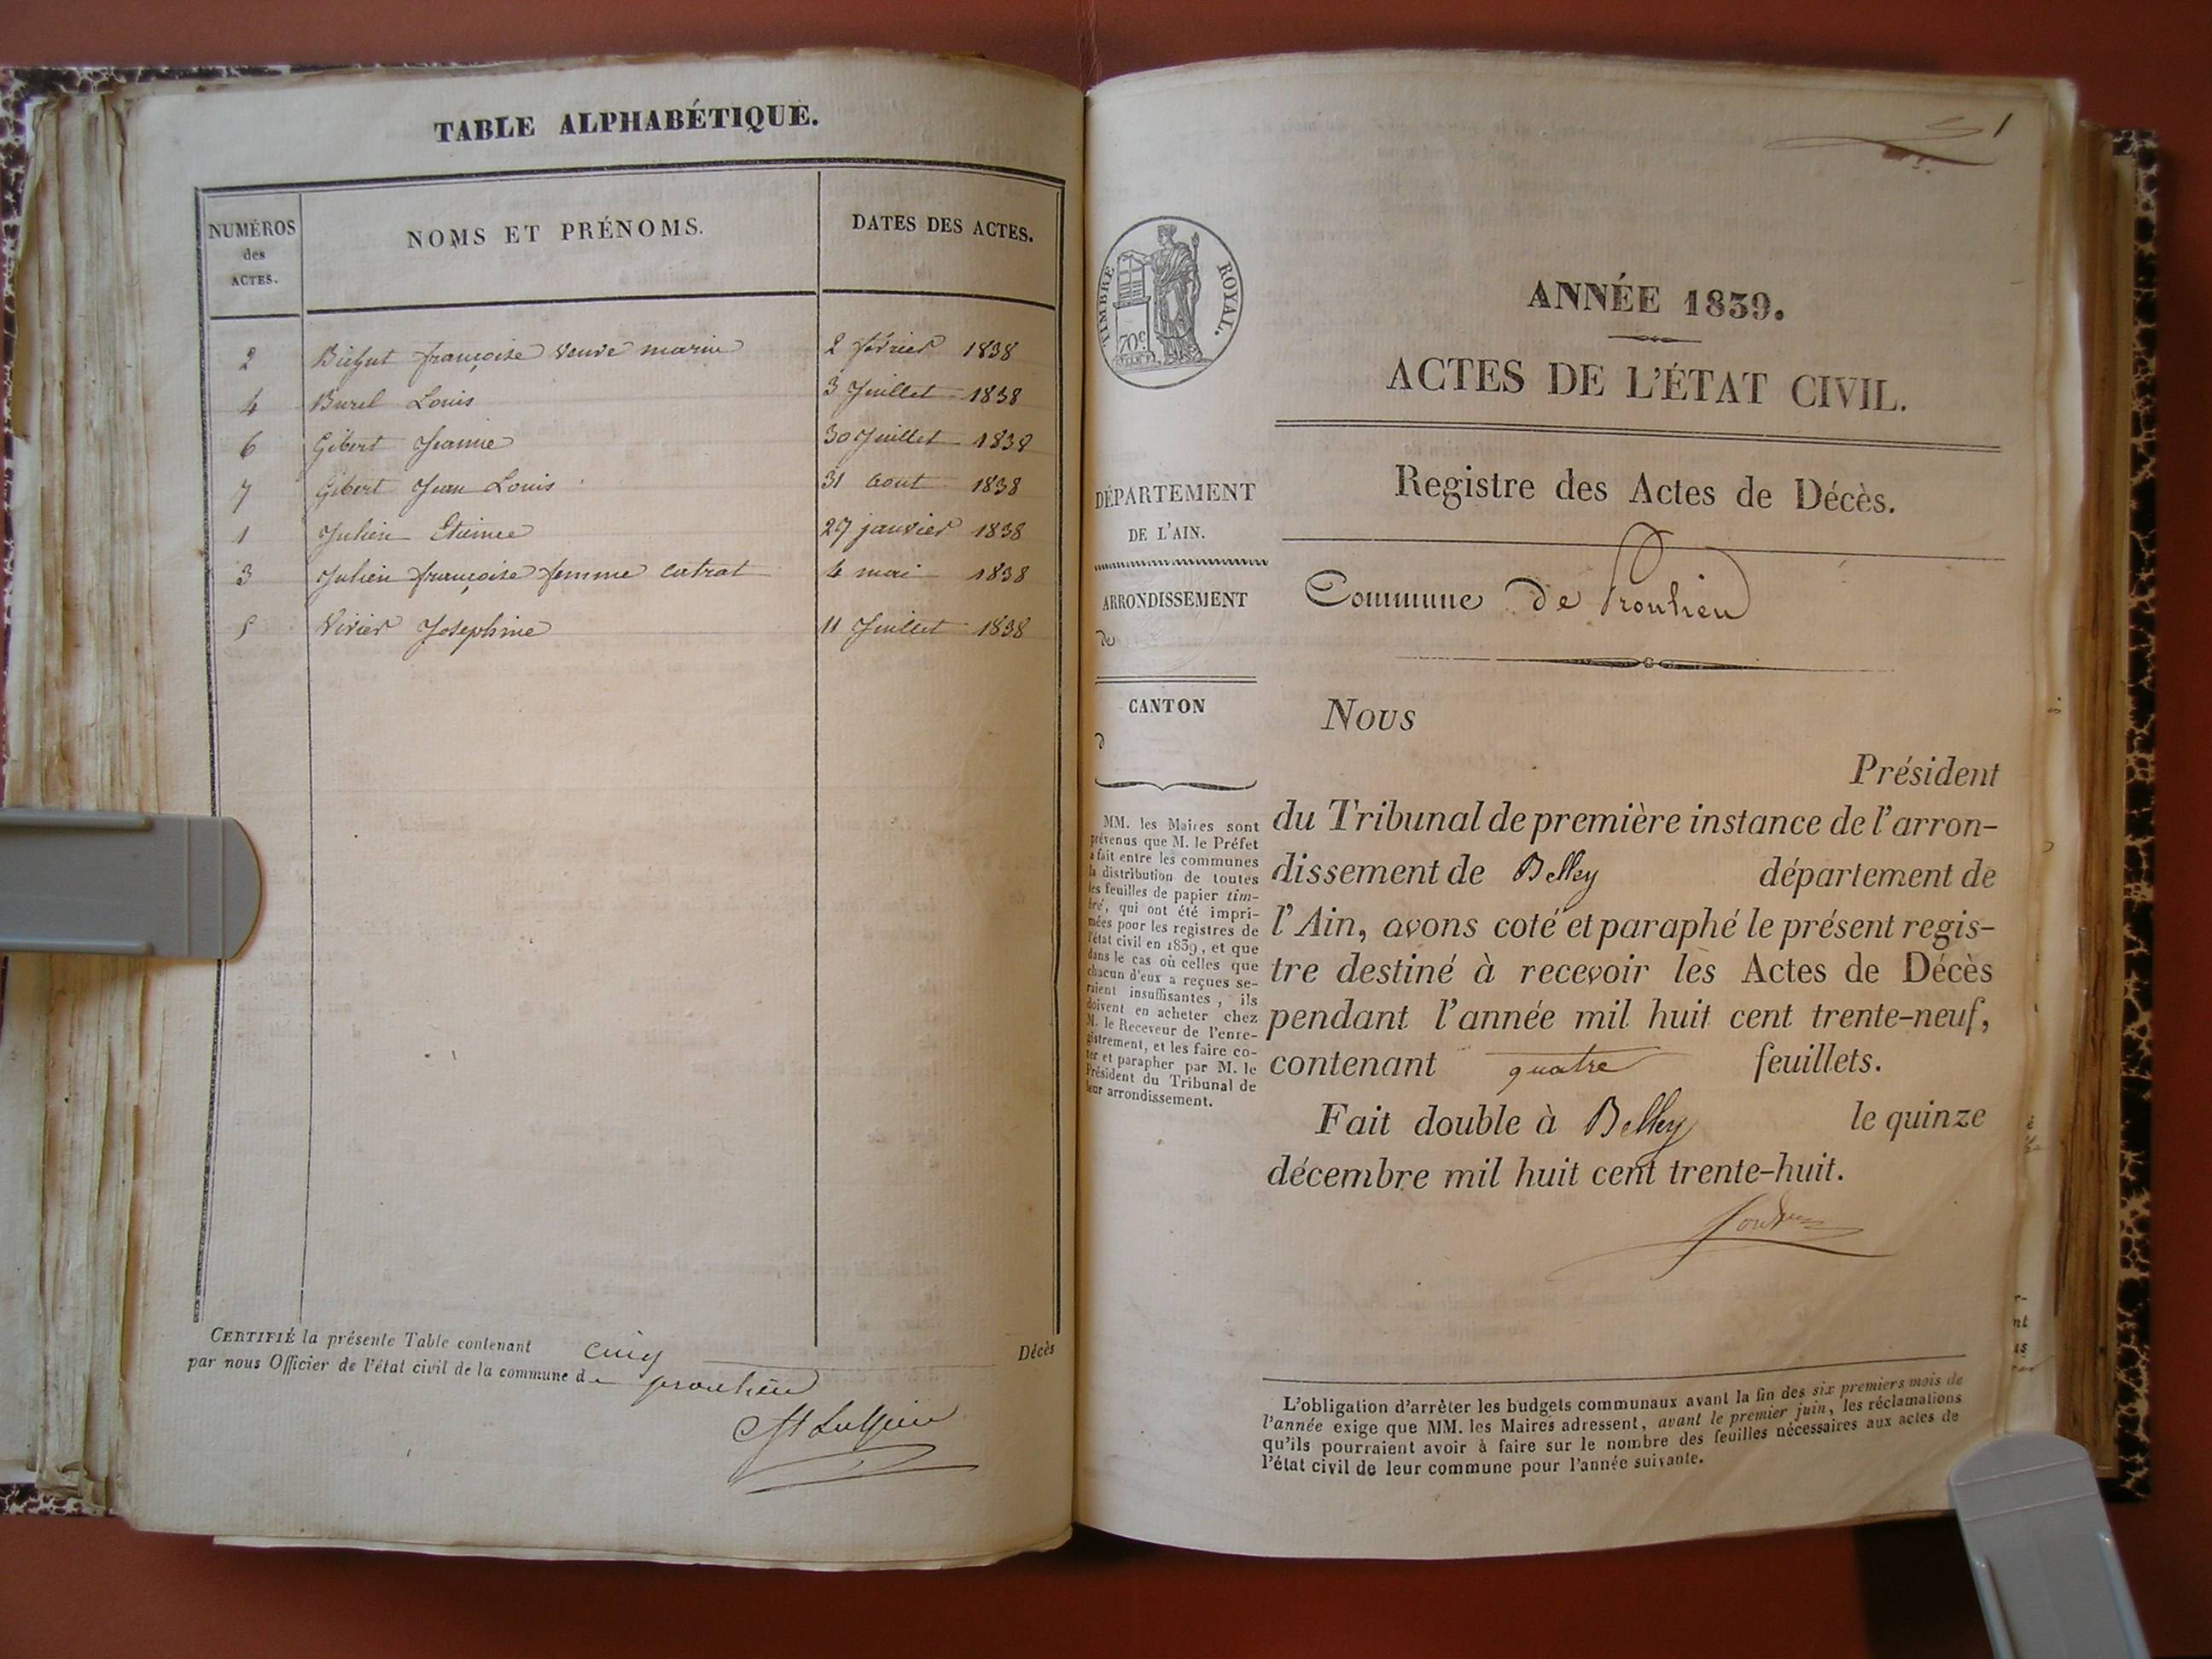 TABLE ALPHABÉTIQUE.
NUMÉROS des ACTES.
NOMS ET PRÉNOMS.
DATES DES ACTES.
2 françoise veuve marin 2 février 1838
4 Burel Louis 3 Juillet 1838
6 Gibert Jeanne 30 Juillet 1838
7 Gibert Jean Louis 31 aout 1838
1 Julien Etienne 27 janvier 1838
3 Julien françoise femme catrat 4 mai 1838
5 Vivier Josephine 11 Juillet 1838
CERTIFIÉ la présente Table contenant cinq Décès
par nous Officier de l'état civil de la commune de proulieu
1
TIMBRE ROYAL.
70c.
ANNÉE 1839.
ACTES DE L'ÉTAT CIVIL.
Registre des Actes de Décès.
Commune de Proulieu
DÉPARTEMENT
DE L'AIN.
ARRONDISSEMENT
de
CANTON
d
MM. les Maires sont
prévenus que M. le Préfet
a fait entre les communes
la distribution de toutes
les feuilles de papier tim-
bré, qui ont été impri-
mées pour les registres de
l'état civil en 1839, et que
dans le cas où celles que
chacun d'eux a reçues se-
raient insuffisantes, ils
doivent en acheter chez
M. le Receveur de l'enre-
gistrement, et les faire co-
ter et parapher par M. le
Président du Tribunal de
leur arrondissement.
Nous
Président
du Tribunal de première instance de l'arron-
dissement de Belley département de
l'Ain, avons coté et paraphé le présent regis-
tre destiné à recevoir les Actes de Décès
pendant l'année mil huit cent trente-neuf,
contenant quatre feuillets.
Fait double à Belley le quinze
décembre mil huit cent trente-huit.
L'obligation d'arrêter les budgets communaux avant la fin des six premiers mois de
l'année exige que MM. les Maires adressent, avant le premier juin, les réclamations
qu'ils pourraient avoir à faire sur le nombre des feuilles nécessaires aux actes de
l'état civil de leur commune pour l'année suivante.